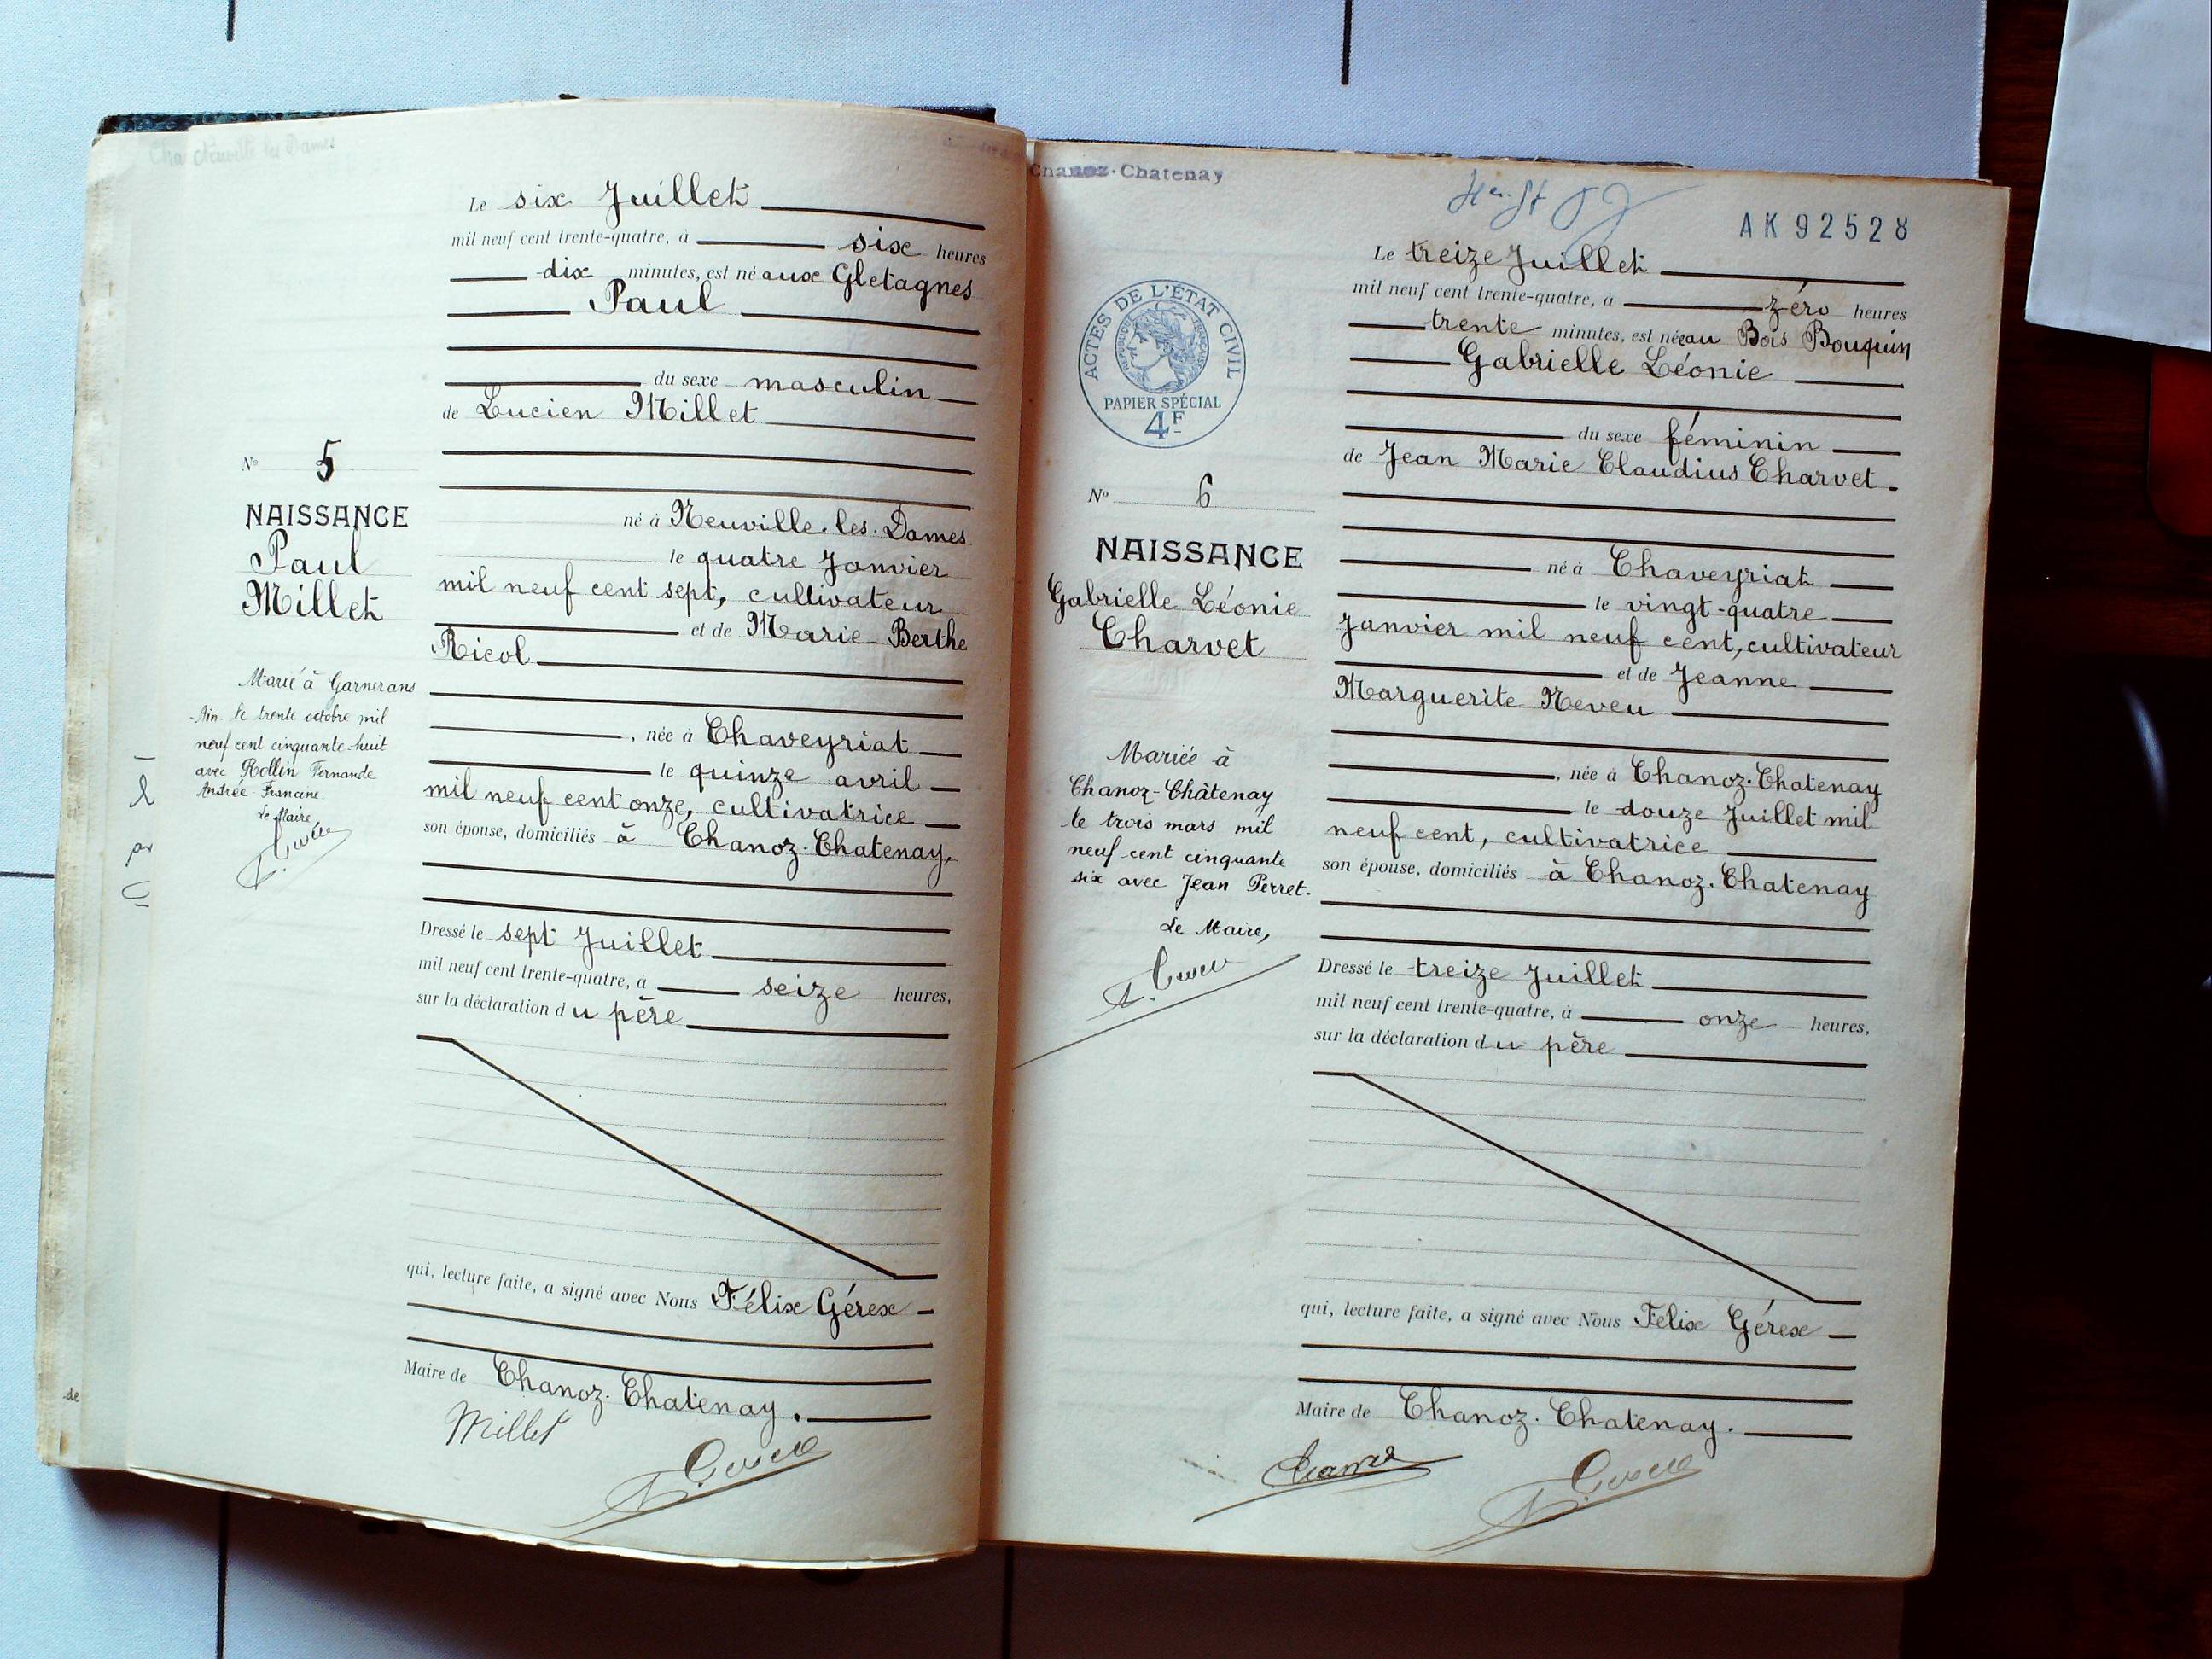 Le six Juillet
mil neuf cent trente-quatre, à six heures
dix minutes, est né aux Gletagnes
Paul
du sexe masculin
de Lucien Millet
N° 5
NAISSANCE
Paul
Millet
né à Neuville-les-Dames
le quatre Janvier
mil neuf cent sept, cultivateur
et de Marie Berthe
Ricol
, née à Chaveyriat
le quinze avril
mil neuf cent onze, cultivatrice
son épouse, domiciliés à Chanoz-Chatenay,
Marié à Garnerans
Ain le trente octobre mil
neuf cent cinquante-huit
avec Rollin Fernande
Andrée Francine.
Le Maire
Dressé le sept Juillet
mil neuf cent trente-quatre, à seize heures,
sur la déclaration du père
qui, lecture faite, a signé avec Nous Félix Gérex
Maire de Chanoz-Chatenay.
Millet
Chanoz-Chatenay
AK 92528
Le treize Juillet
mil neuf cent trente-quatre, à zéro heures
trente minutes, est née au Bois Bouquin
Gabrielle Léonie
du sexe féminin
de Jean Marie Claudius Charvet
ACTES DE L'ÉTAT CIVIL
RÉPUBLIQUE FRANÇAISE
PAPIER SPÉCIAL
4F
N° 6
NAISSANCE
Gabrielle Léonie
Charvet
né à Chaveyriat
le vingt-quatre
Janvier mil neuf cent, cultivateur
et de Jeanne
Marguerite Neveu
, née à Chanoz-Chatenay
le douze Juillet mil
neuf cent, cultivatrice
son épouse, domiciliés à Chanoz-Chatenay
Mariée à
Chanoz-Châtenay
le trois mars mil
neuf cent cinquante
six avec Jean Perret.
Le Maire,
Dressé le treize Juillet
mil neuf cent trente-quatre, à onze heures,
sur la déclaration du père
qui, lecture faite, a signé avec Nous Félix Gérex
Maire de Chanoz-Chatenay.